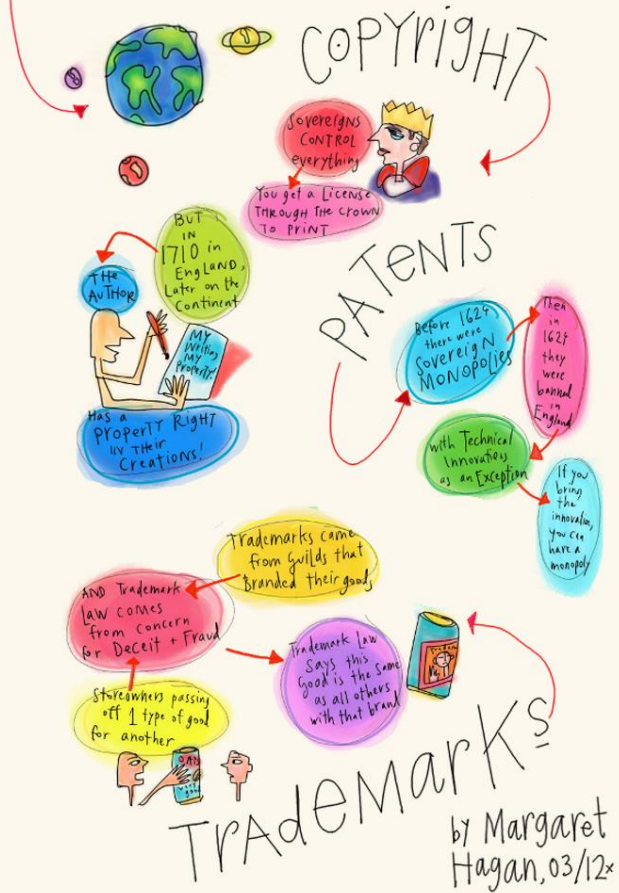 COPYRIGHT
SOVEREIGNS
CONTROL
everything
You get a License
THROUGH THE CROWN
TO PRINT
BUT
IN
1710 in
ENGLAND,
Later on the
Continent
THE
AUTHOR
MY
Writing
MY
Property
Has a
PROPERTY RIGHT
IN THEIR
Creations!
PATENTS
Before 1624
there were
SOVEREIGN
MONOPOLIES
Then
in
1624
they
were
banned
in
England
with Technical
Innovations
as an Exception
If you
bring
the
innovation,
you can
have a
monopoly
Trademarks came
from Guilds that
Branded their goods
AND Trademark
LAW COMES
from concern
for Deceit + Fraud
Storeowners passing
off 1 type of good
for another
Trademark Law
Says this
Good is the Same
as all others
with that brand
TRADEMARKS
by Margaret
Hagan, 03/12